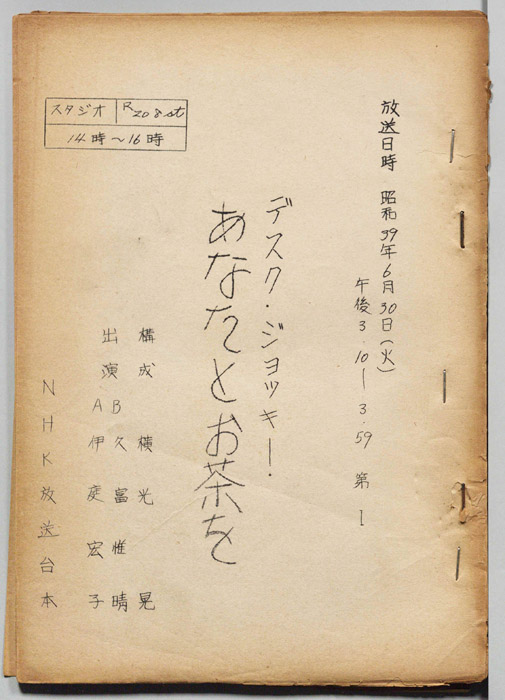 放送日時 昭和39年6月30日(火)
午後3.10―3.59 第1
デスク・ジョッキー・
あなたとお茶を
スタジオ R208st
14時~16時
構成 横光晃
出演 B 久富惟晴
A 伊庭宏子
NHK放送台本